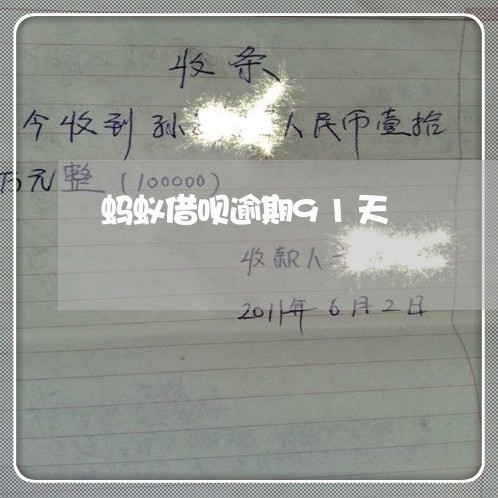 收条
今收到孙 人民币壹拾
万元整(100000)
蚂蚁借呗逾期91天
收款人
2011年6月2日